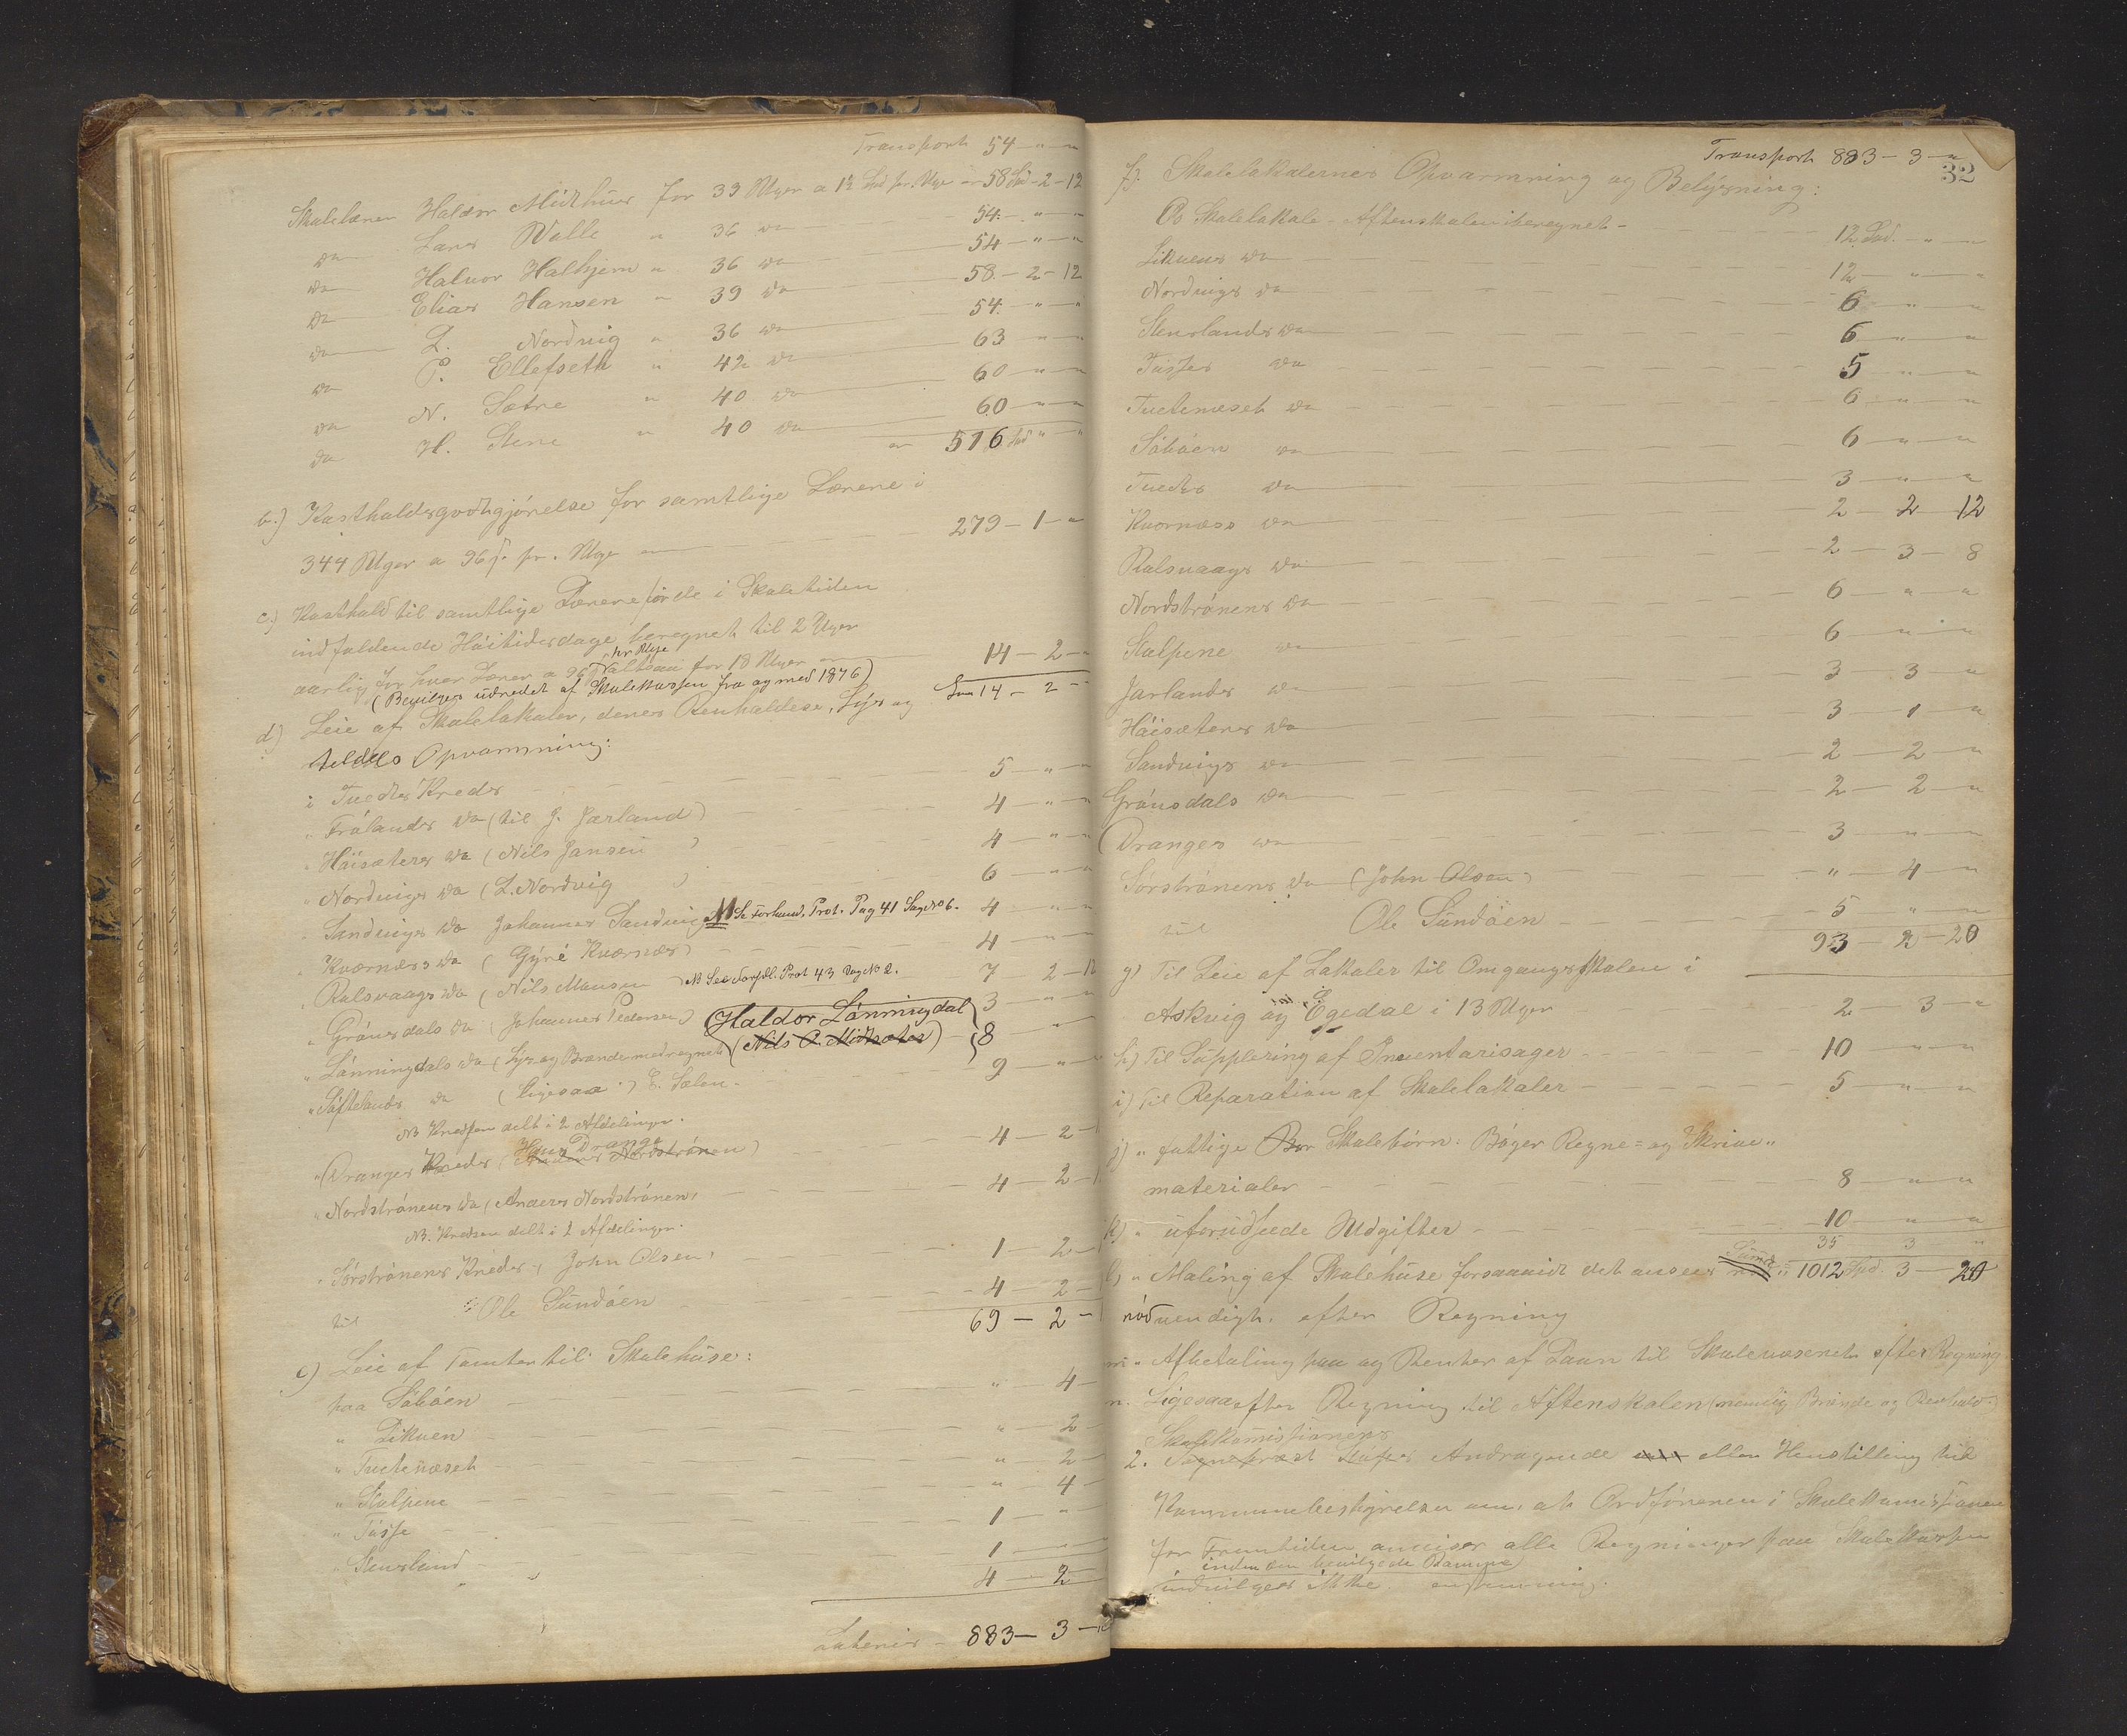 Transport 54 - " - "
Skolelærer Haldor Midthus for 39 Uger a 1½ Spd pr. Uge er 58 Spd - 2 - 12
do Lars Walle " 36 do 54 - " - "
do Halvor Halhjem " 36 do 54 - " - "
do Elias Hansen " 39 do 58 - 2 - 12
do L. Nordvig " 36 do 54 - " - "
do P. Ellefseth " 42 do 63 - " - "
do N. Sætre " 40 do 60 - " - "
do H. Stene " 40 do 60 - " - "
er 516 Spd " - "
b.) Kostholdsgodtgjörelse for samtlige Lærere i
344 Uger a 96 ſ. pr. Uge 279 - 1 - "
c.) Kosthold til samtlige Lærere for de i Skoletiden
indfaldende Höitidsdage beregnet til 2 Uger
aarlig for hver Lærer a 96 ſ pr Uge altsaa for 18 Uger 14 - 2 - "
(Bevilges udredet af Skolekassen fra og med 1876) Sum 14 - 2 - "
d.) Leie af Skolelokaler, deres Renholdelse, Lys og
tildels Opvarmning:
i Tuedts Kreds 5 - " - "
" Frölands do (til J. Jarland) 4 - " - "
" Höisæters do (Nils Jansen) 4 - " - "
" Nordvigs do (L. Nordvig) 6 - " - "
" Sandvigs do Johannes Sandvig NB Se Forhand. Prot. Pag 41 Sag No 6. 4 - " - "
" Kværnæs do (Gÿri Kværnæs) 4 - " - "
" Rolsvaags do (Nils Monsen) NB See Forhdl. Prot 43 Sag No 2. 7 2 - 12
" Grönsdals do (Johannes Pedersen) 3 - " - "
" Lönningdals do (Lys og Brænde medregnet) (Haldor Lönningdal) (Nils O. Midtsæter) 8 - " - "
" Söftelands do (ligesaa) E. Sælen. 9 - " - "
NB Kredsen delt i 2 Afdelinger.
" Dranges Kreds (Hans Drange) (Anders Nordströnen) 4 - 2 -
" Nordströnens do (Anders Nordströnen) 4 - 2 -
NB. Kredsen delt i 2 Afdelinger.
" Sörströnens Kreds (John Olsen) 1 - 2 -
til Ole Sundöen 4 - 2 -
69 - 2 -
e) Leie af Tomter til Skolehuse:
paa Söböen " - 4 -
" Likuen " - 2 -
" Tuetenæset " - 2 -
" Skulpene " - 4 -
" Tösse 1 - "
" Skurland 1 - "
4 - 2 -
Lateris - 883 - 3 -
32
Transport 883 - 3 - "
f). Skolelokalernes Opvarmning og Belysning:
Os Skolelokale - Aftenskolen iberegnet - 12 Spd. - " - "
Likuens do 12 - " - "
Nordvigs do 6 - " - "
Skurlands do 6 - " - "
Tösses do 5 - " - "
Tuetenæset do 6 - " - "
Söböen do 6 - " - "
Tuedts do 3 - " - "
Kværnæs do 2 - 2 - 12
Rolsvaags do 2 - 3 - 8
Nordströnens do 6 - " - "
Skulpene do 6 - " - "
Jarlands do 3 - 3 - "
Höisæters do 3 - 1 - "
Sandvigs do 2 - 2 - "
Grönsdals do 2 - 2 - "
Dranges do 3 - " - "
Sörströnens do (John Olsen) " - 4 - "
til Ole Sundöen 5 - " - "
93 - 2 - 20
g) Til Leie af Lokaler til Omgangsskolen i
Askvig og Egedal i 13 Uger 2 - 3 - "
h) Til Supplering af Inventarisager 10 - " - "
i) Til Reparation af Skolelokaler 5 - " - "
j) " fattige Skolebörn: Böger Regne- og Skrive-
materialer 8 - " - "
k) " uforudseede Udgifter 10 " - "
35 3 "
l) " Maling af Skolehuse forsaavidt det ansees Summa 1012 Spd. 3 - 20
nödvendigt, efter Regning
m " Afbetaling paa og Renter af Laan til Skolevæsenet efter Regning
n. Ligesaa efter Regning til Aftenskolen (nemlig Brænde og Renhold)
Skolekommissionens
2. Sogneprest Andragende eller Henstilling til
Kommunebestyrelsen om, at Ordföreren i Skolekommissionen
for Fremtiden anviser alle Regninger paa Skolekassen
inden den bevilgede Ramme
indvilges ikke enstemmig.